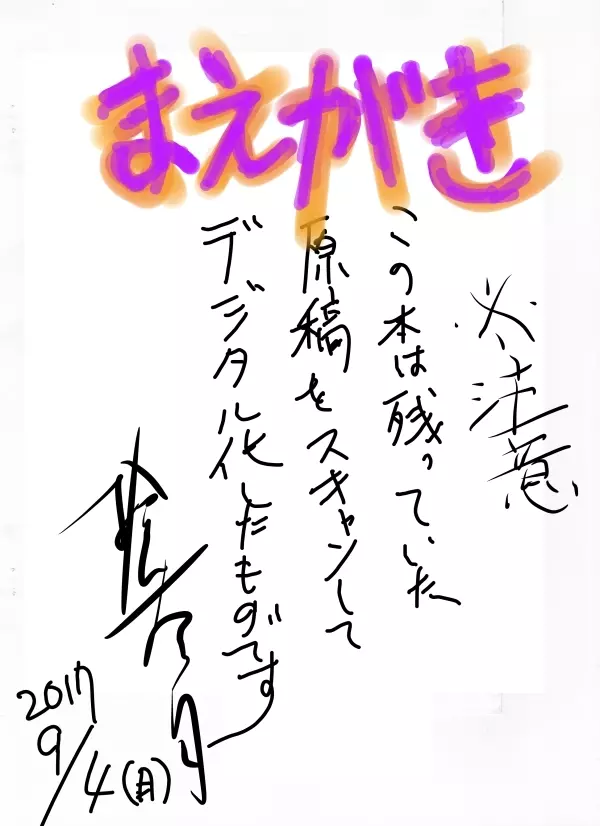 まえがき
※注意
この本は残っていた
原稿をスキャンして
デジタル化したものです
2017
9/4(月)